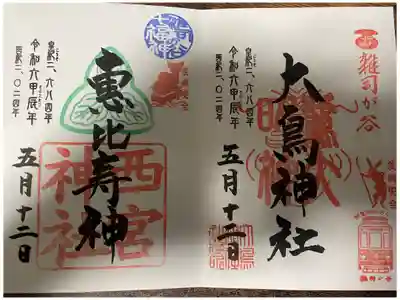 雑司が谷
大鳥神社
皇紀二、六八四年
令和六甲辰年
西暦二、〇二四年
五月十二日
雑司ヶ谷
七福神
恵比寿神
西宮
神社
皇紀二、六八四年
令和六甲辰年
西暦二、〇二四年
五月十二日